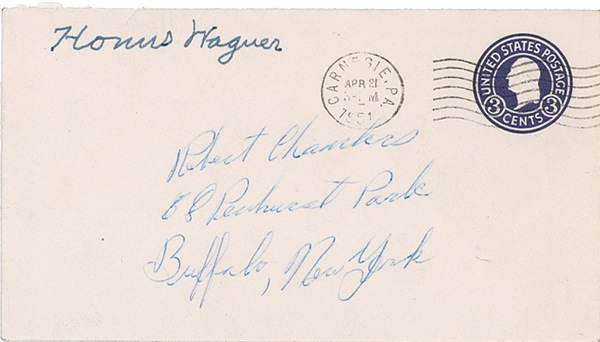 Honus Wagner
CARNEGIE, PA.
APR 21
1951
UNITED STATES POSTAGE
3 CENTS 3
Robert Chambers
88 Penhurst Park
Buffalo, New York